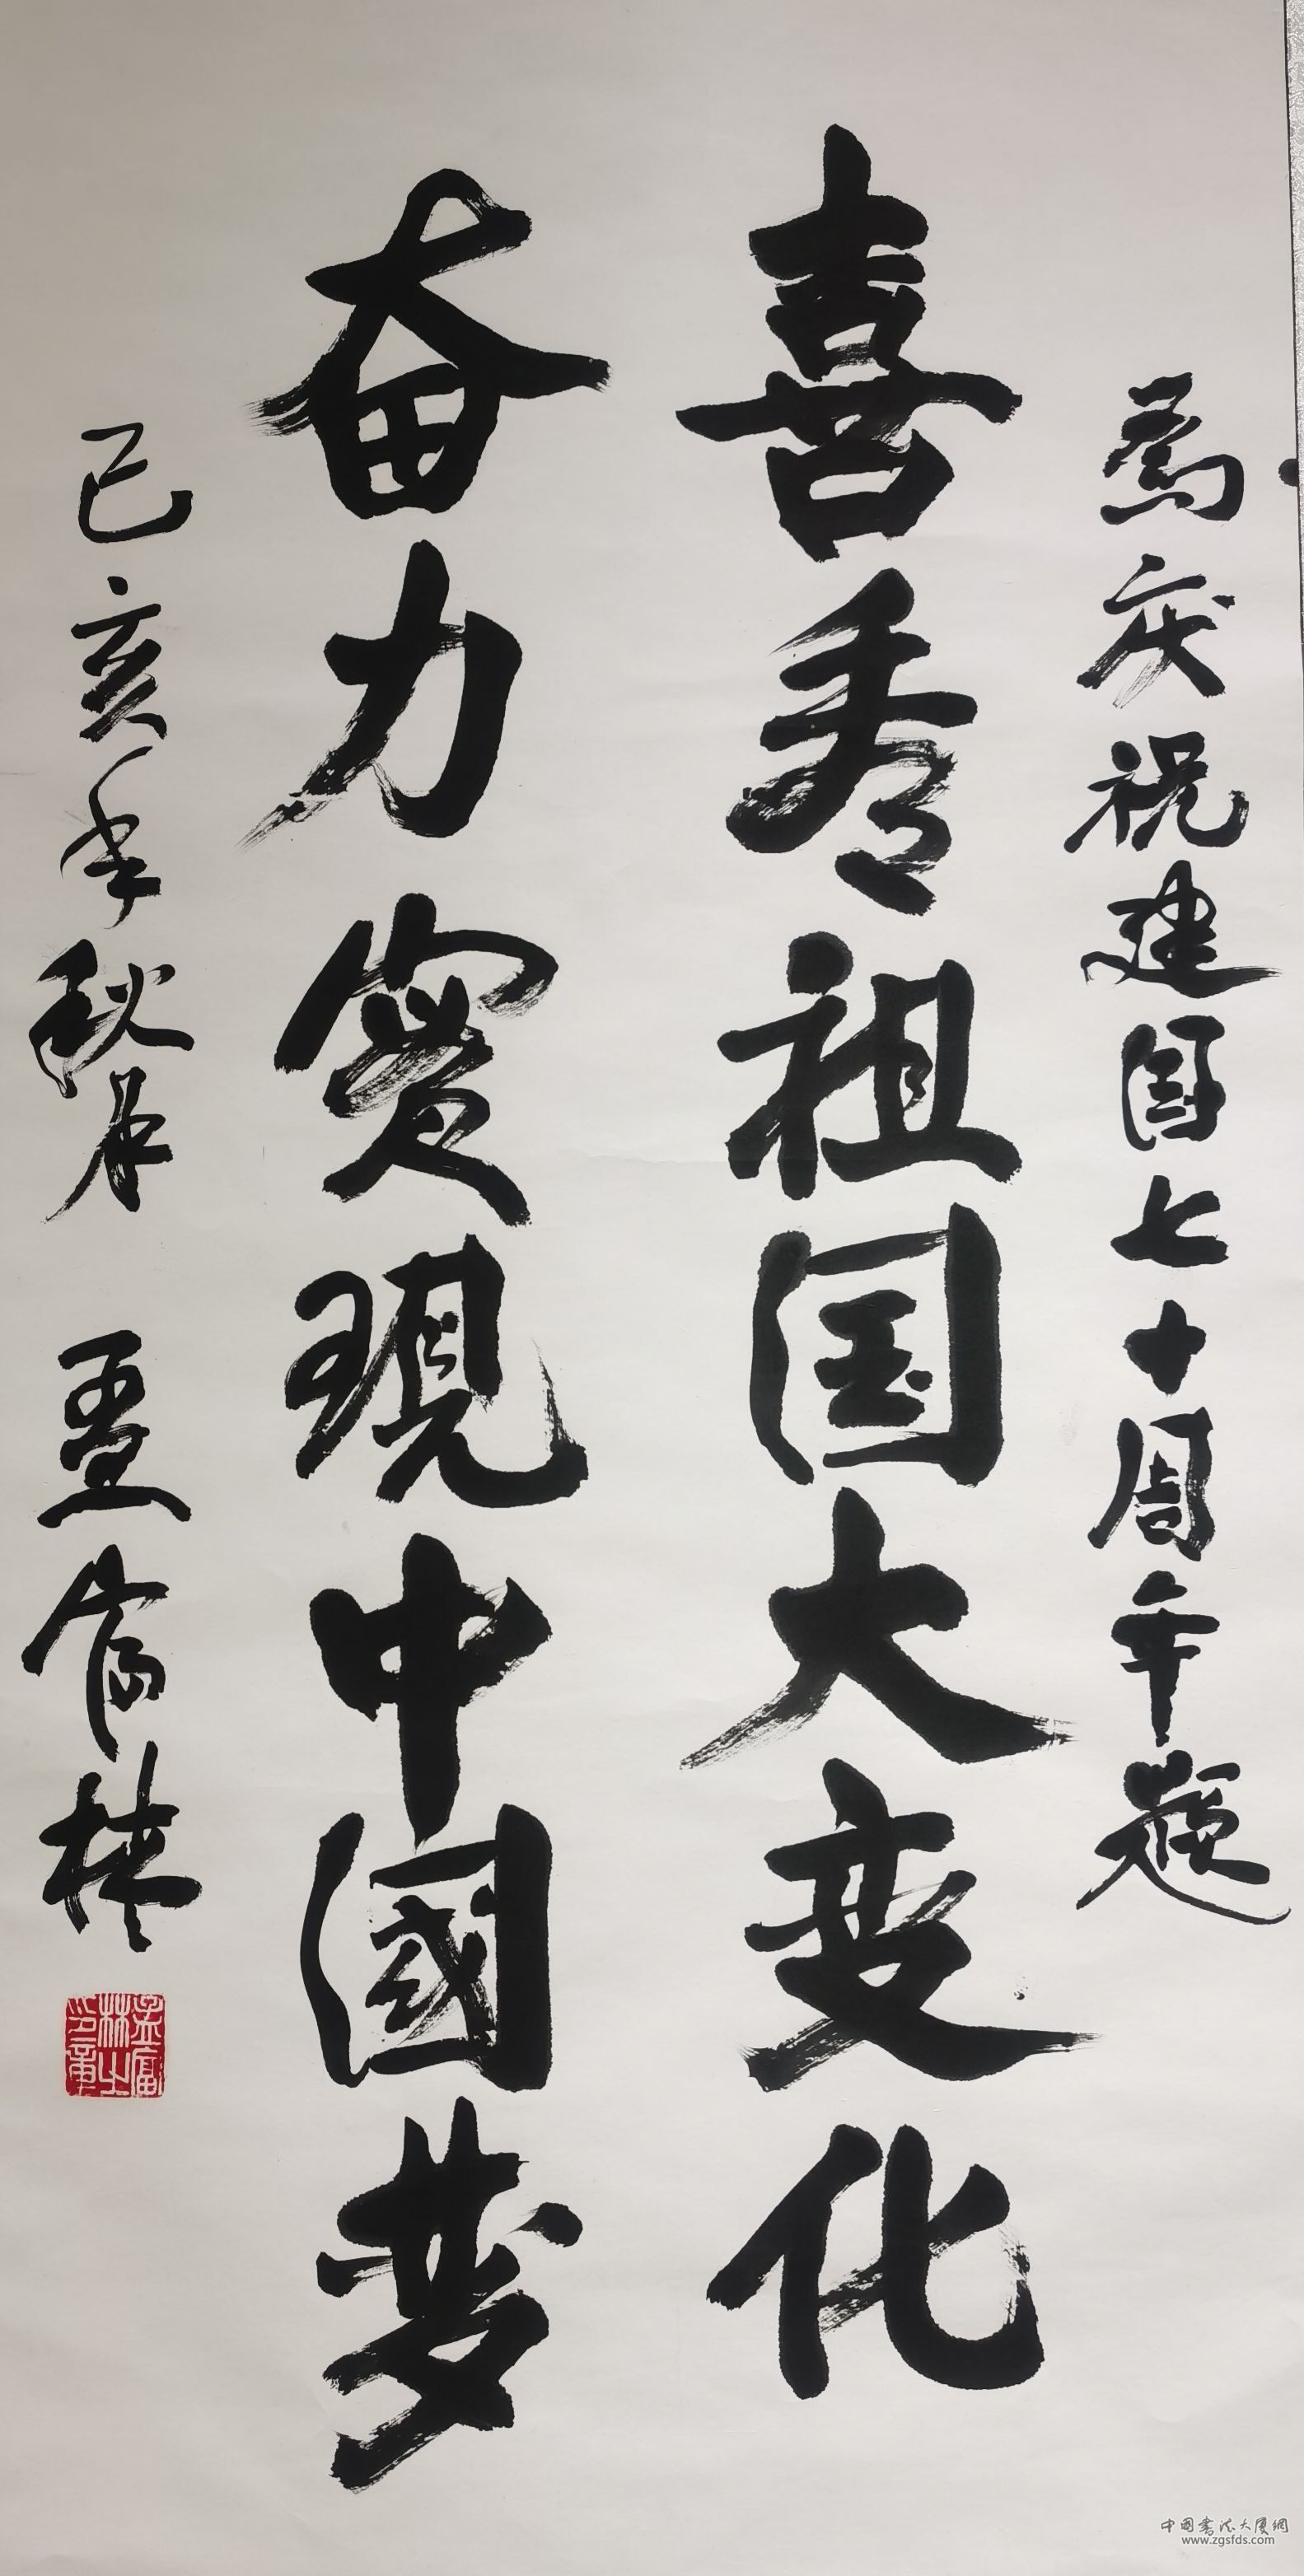 為庆祝建国七十周年題
喜看祖国大变化
奋力實現中國夢
己亥年秋月 孟富林
孟富林之印章
中国书法大厦網
www.zgsfds.com